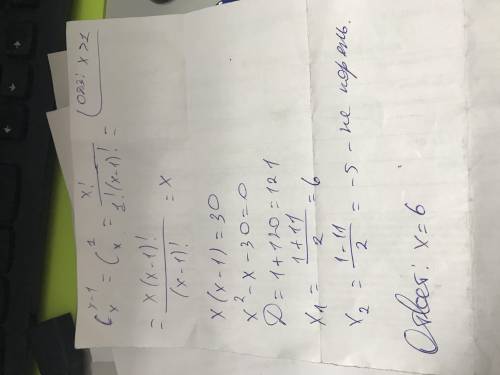 C_x^{x-1} = C_x^1 = \frac{x!}{1!(x-1)!} = (ОДЗ: x>1
= \frac{x(x-1)!}{(x-1)!} = x
x(x-1)=30
x^2-x-30=0
D=1+120=121
x_1 = \frac{1+11}{2} = 6
x_2 = \frac{1-11}{2} = -5 - не корень.
Ответ: x=6